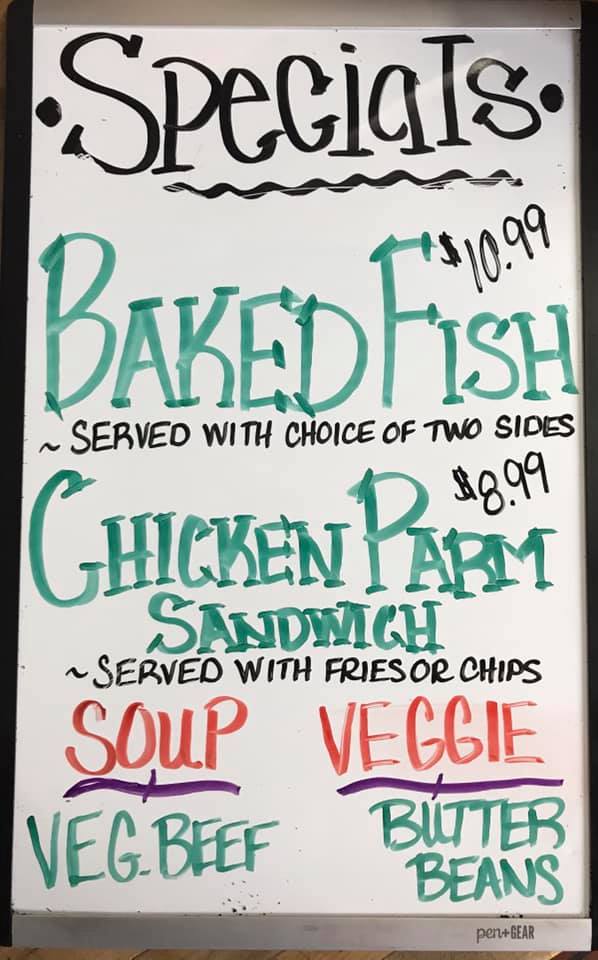 • Specials •
$10.99
BAKED FISH
~ SERVED WITH CHOICE OF TWO SIDES
$8.99
CHICKEN PARM
SANDWICH
~ SERVED WITH FRIES OR CHIPS
SOUP VEGGIE
VEG. BEEF BUTTER
BEANS
pen+GEAR